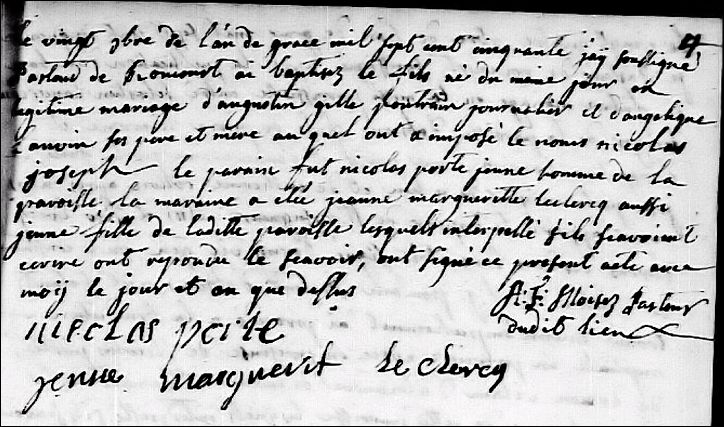 le vingt 9bre de l'an de grace mil sept cent cinquante jay soussigné
Pasteur de ai baptisez le fils né du meme jour en
legitime mariage d'augustin gille journalier et d'angelique
ses pere et mere auquel ont a imposé le nom nicolas
joseph le parain fut nicolas porte jeune homme de la
paroisse la maraine a etée jeanne margueritte leclercq aussi
jeune fille de laditte paroisse lesquels interpellé s'ils scavoient
ecrire ont repondu le scavoir, ont signé ce present acte avec
moij le jour et an que dessus
Pasteur
dudit lien
nicolas porte
jenne marguerit le clercq